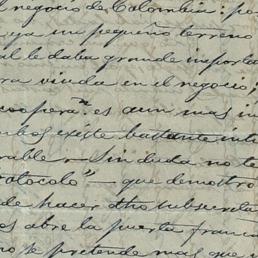 negocio de Colombia; po
ya un pequeño terreno
al le daba grande import
ra viuda en el negocio;
coopera.ⁿ es aun mas in
mbos existe bastante int
rable — Sin duda no te
otocolo" — que demostro
de hacer dho subsecreta
os abre la puerta franca
no se pretende mas que